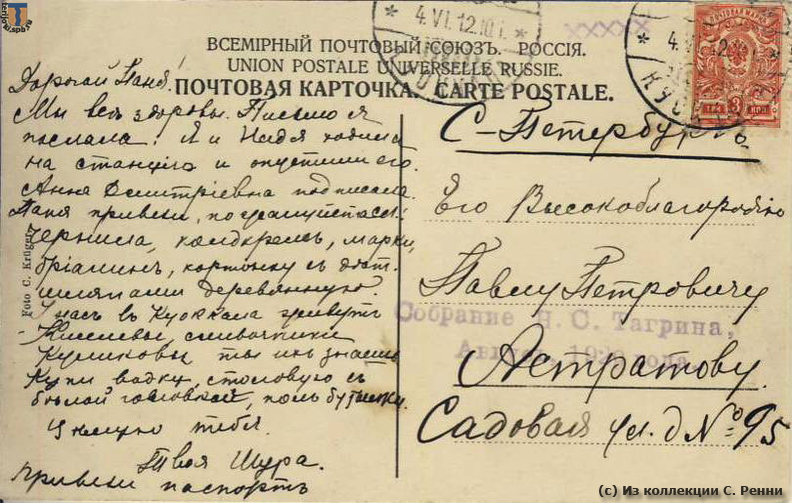 4.VI.12.10
4.VI.12.
ВСЕМІРНЫЙ ПОЧТОВЫЙ СОЮЗЪ. РОССІЯ.
UNION POSTALE UNIVERSELLE RUSSIE.
ПОЧТОВАЯ КАРТОЧКА. CARTE POSTALE.
3
Дорогой Паня!
Мы всѣ здоровы. Письмо я
послала! Я и Надя ходили
на станцію и опустили его.
Анна Дмитріевна подписала.
Паня привези, пожалуйста
чернила, карандашъ, марки,
картонку съ
шляпами деревянную.
У насъ въ Куоккала живутъ
Киселевы,
Куликовы ты ихъ знаешь
Купи водку, столовую съ
бѣлой головкой, полбутылки.
Цѣлую тебя.
Твоя Шура.
Привези паспортъ
С-Петербургъ.
Его Высокоблагородію
Павлу Петровичу
Астратову.
Садовая ул. д № 95
Собрание Н. С. Тагрина,
года.
Foto C. Krüger
(c) Из коллекции С. Ренни